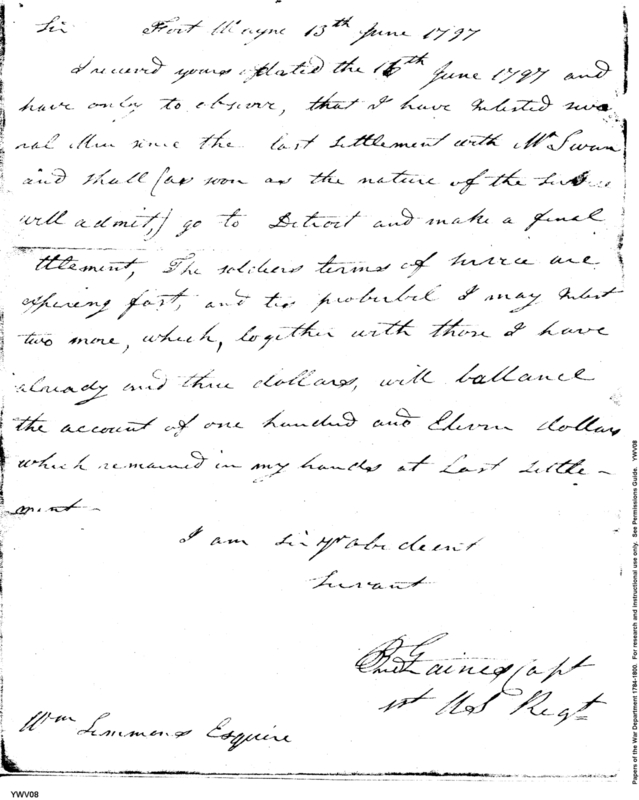 Sir Fort Wayne 13th June 1797
I receved yours dated the 16th June 1797 and
have only to observe, that I have Inlested seve
ral Men since the last settlement with Mr Swan
and shall (as soon as the nature of the
will admit,) go to Detroit and make a final
ttlement, The soldiers terms of service are
expireing fast, and tis proberbel I may Inlest
two more, which, together with those I have
already and three dollars, will ballance
the account of one hundred and Eleven dollars
which remained in my hands at Last settle-
ment-
I am Sir yr abedeent
Servant
Gaines Capt
1st US Regt
Wm Simmons Esquire
Papers of the War Department 1784-1800. For research and instructional use only. See Permissions Guide. YWV08
YWV08